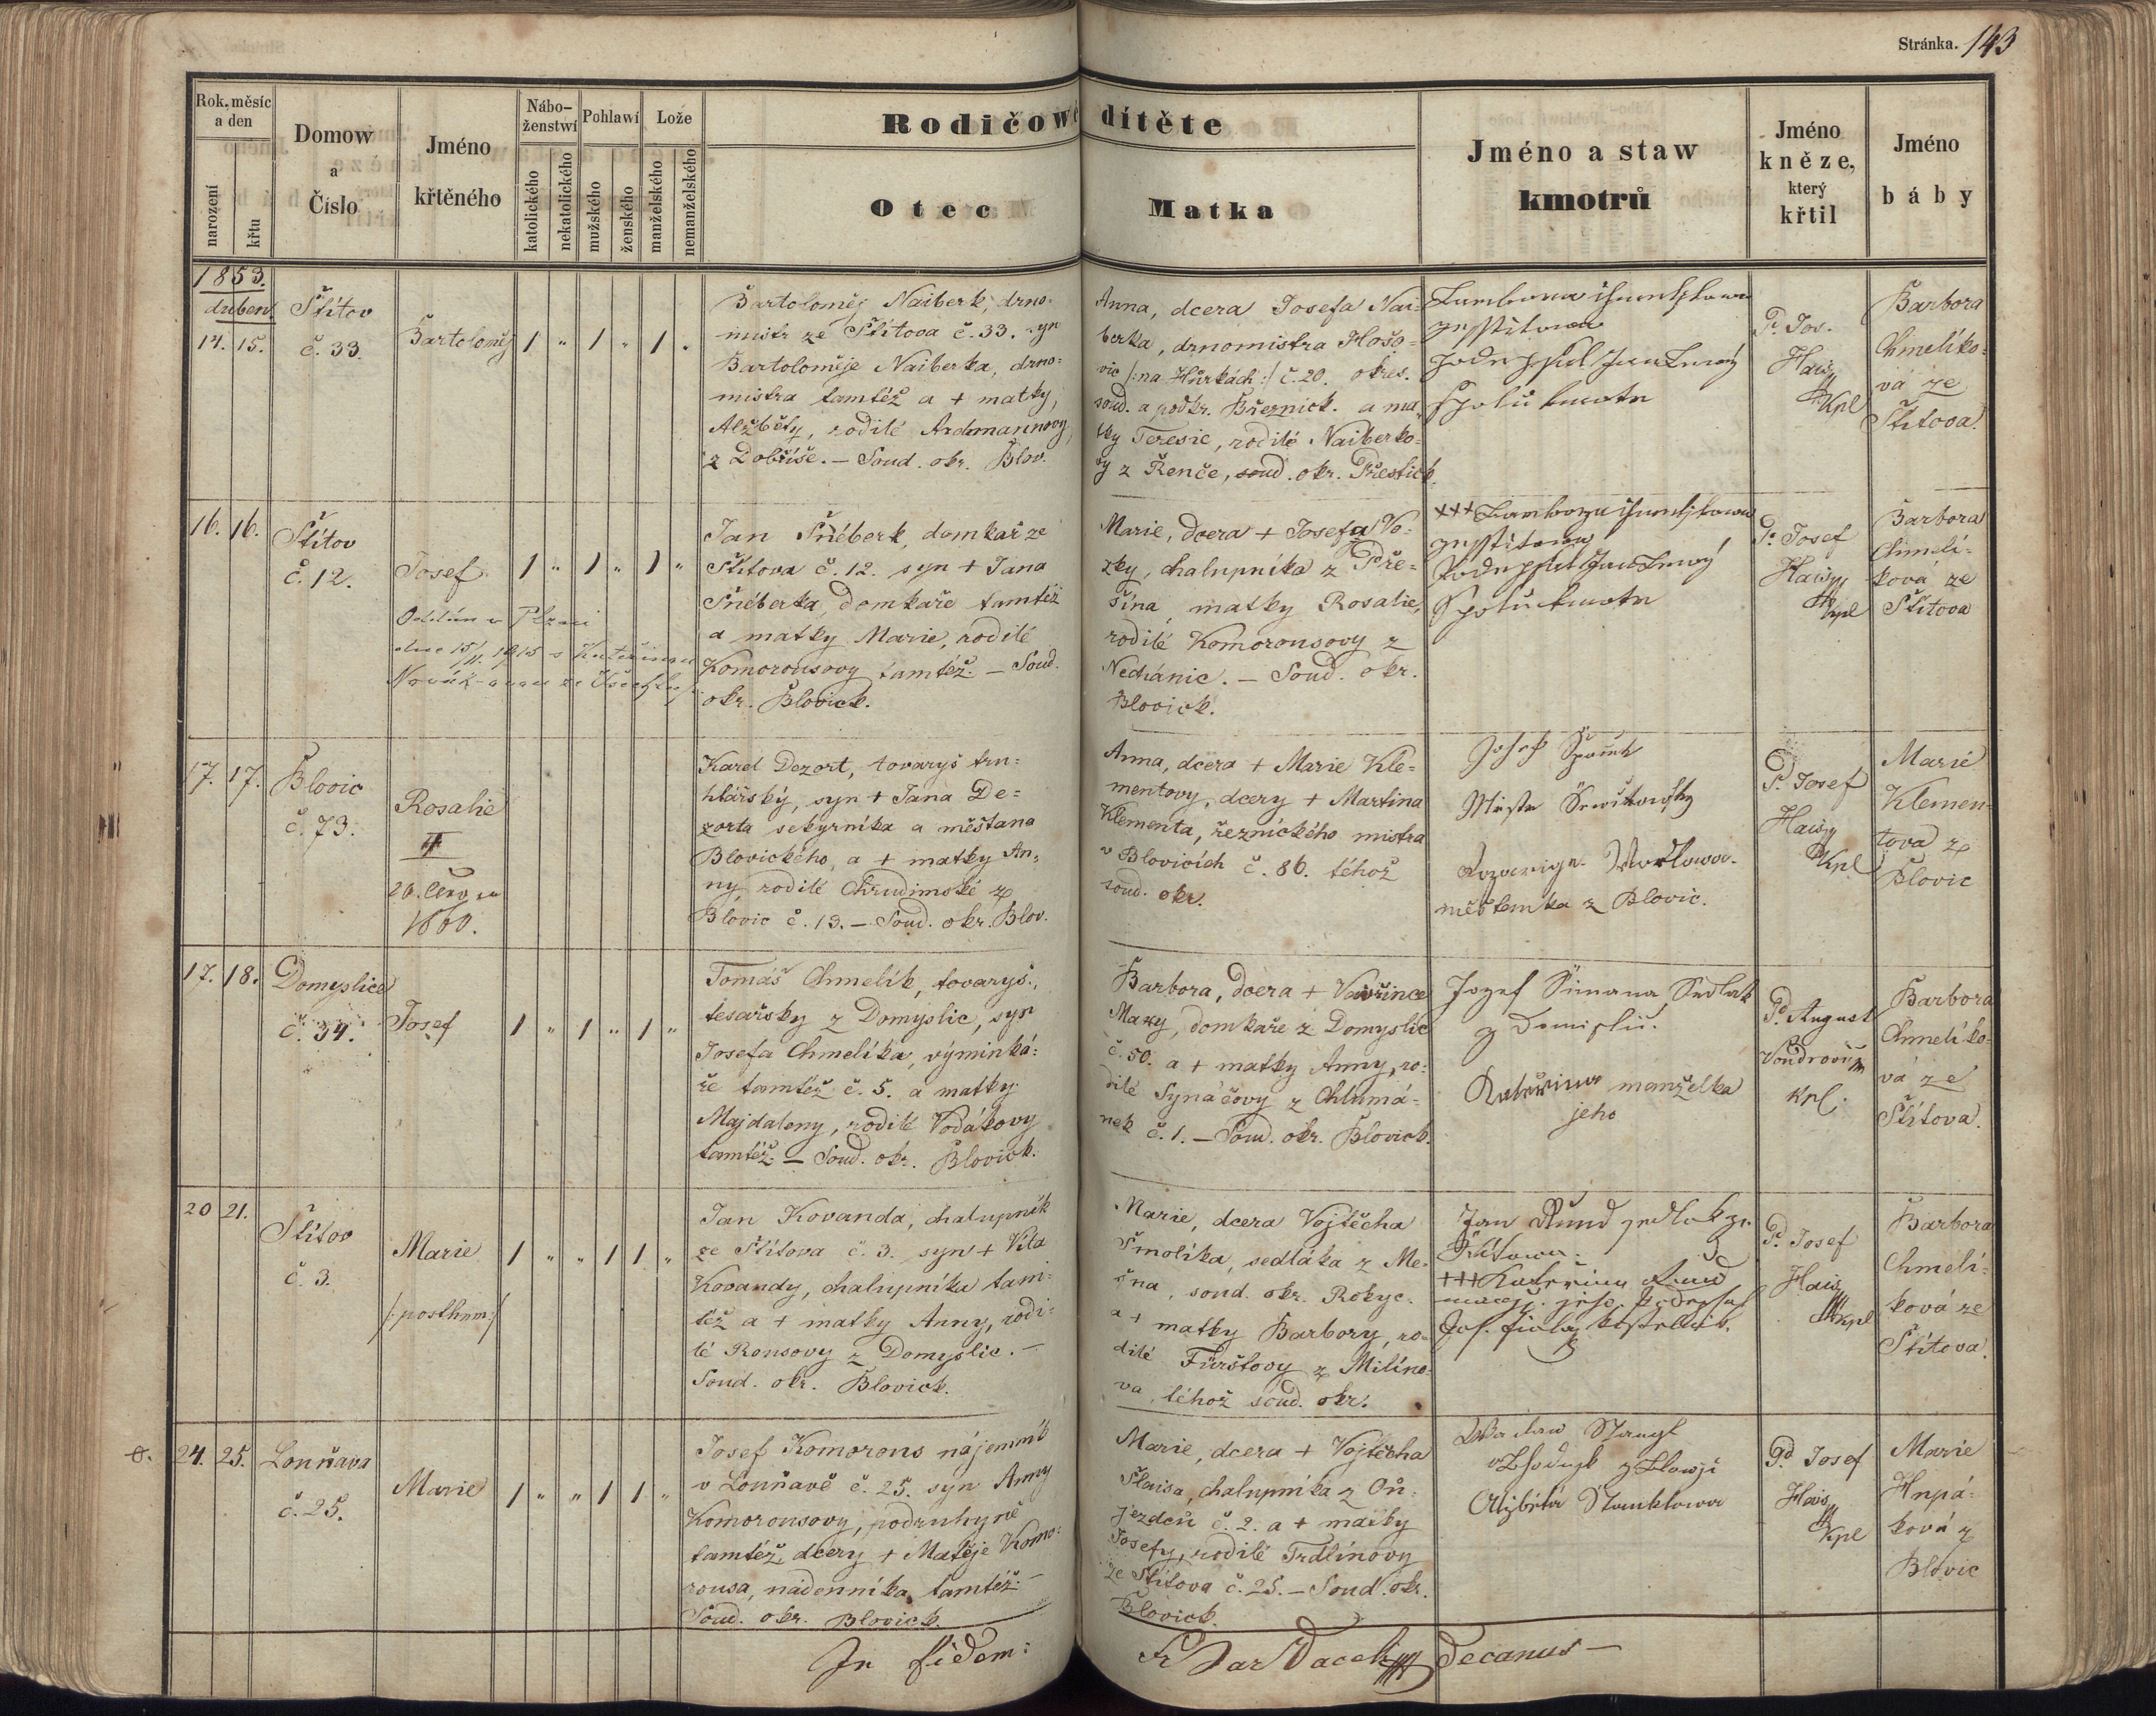 Stránka. 143
Rok, měsíc a den
narození
křtu
Domow a Číslo
Jméno křtěného
Nábo-ženstwí
katolického
nekatolického
Pohlawí
mužského
ženského
Lože
manželského
nemanželského
Rodičowé dítěte
Otec
Matka
Jméno a staw kmotrů
Jméno kněze, který křtil
Jméno báby
1853.
duben
14. 15.
Štítov
č. 33.
Bartoloměj
1 " 1 " 1 "
Bartoloměj Naiberk, drno=
mistr ze Štítova č. 33. syn
Bartoloměje Naiberka, drno=
mistra tamtéž a + matky,
Alžběty, rodilé Ardmannovy
z Dobříše. — Soud. okr. Blov.
Anna, dcera Josefa Nai=
berka, drnomistra Hošo=
vic /: na Hůrkách :/ č. 20. okres.
soud. a podkr. Březnick. a ma=
tky Teresie, rodilé Naiberko=
vy z Řenče, soud. okr. Přestick.
P. Jos.
Hais
Kpl
Barbora
Chmelíko=
vá ze
Štítova.
16. 16.
Štítov
č. 12.
Josef
1 " 1 " 1 "
Oddán v Plzni
dne 15/11. 1915 s Kateřinou
Novák-ovou ze
Jan Šnéberk, domkař ze
Štítova č. 12. syn + Jana
Šnéberka, domkaře tamtéž
a matky Marie, rodilé
Komorousovy tamtéž. — Soud.
okr. Blovick.
Marie, dcera + Josefa Vo=
zky, chalupníka z Pře=
šína, matky Rosalie,
rodilé Komorousovy z
Nechánic. — Soud. okr.
Blovick.
+++
P. Josef
Hais
Kpl
Barbora
Chmelí=
ková ze
Štítova
17. 17.
Blovic
č. 73.
Rosalie
20.
1860.
Karel Dezort, tovaryš tru=
hlářský, syn + Jana De=
zorta sekyrníka a měšťana
Blovického, a + matky An=
ny, rodilé Chrudimské z
Blovic č. 13. — Soud. okr. Blov.
Anna, dcera + Marie Kle=
mentovy, dcery + Martina
Klementa, řeznického mistra
v Blovicích č. 86. téhož
soud. okr.
Josef
měšťanka z Blovic.
P. Josef
Hais
Kpl
Marie
Klemen=
tová z
Blovic
17. 18.
Domyslice
č. 34.
Josef
1 " 1 " 1 "
Tomáš Chmelík, tovaryš
tesařský z Domyslic, syn
Josefa Chmelíka, výminká=
ře tamtéž č. 5. a matky
Majdaleny, rodilé Vodákovy
tamtéž. — Soud. okr. Blovick.
Barbora, dcera + Vavřince
Maxy, domkaře z Domyslic
č. 50. a + matky Anny, ro=
dilé Synáčovy z Chlumá=
nek č. 1. — Soud. okr. Blovick.
Jozef Simana, Sedlak
z Domislic.
Kateřina manželka
jeho
P. August
Vondrovic
Kpl.
Barbora
Chmelíko=
vá ze
Štítova.
20 21.
Štítov
č. 3.
Marie
/: posthum :/
1 " " 1 1 "
Jan Kovanda, chalupník
ze Štítova č. 3. syn + Víta
Kovandy, chalupníka tam=
též a + matky Anny, rodi=
lé Rousovy z Domyslic. —
Soud. okr. Blovick.
Marie, dcera Vojtěcha
Smolíka, sedláka z Me=
šna, soud. okr. Rokyc.
a + matky Barbory, ro=
dilé Fürstovy z Milíno=
va, téhož soud. okr.
Jan Rund sedlak ze
Štitowa.
+++ Kateřina Rund
P. Josef
Hais
Kpl
Barbora
Chmelí=
ková ze
Štítova.
24. 25.
Louňava
č. 25.
Marie
1 " " 1 1 "
Josef Komorous nájemník
v Louňavě č. 25. syn Anny
Komorousovy, podruhyně
tamtéž, dcery + Matěje Komo=
rousa, nádenníka tamtéž. —
Soud. okr. Blovick.
Marie, dcera + Vojtěcha
Šlaisa, chalupníka z Ou=
jezdců č. 2. a + matky
Josefy, rodilé Trdlínovy
ze Štítova č. 25. — Soud. okr.
Blovick.
Waclaw
Alžběta
P. Josef
Hais
Kpl
Marie
Hnpá=
ková z
Blovic
In fidem:
Decanus —